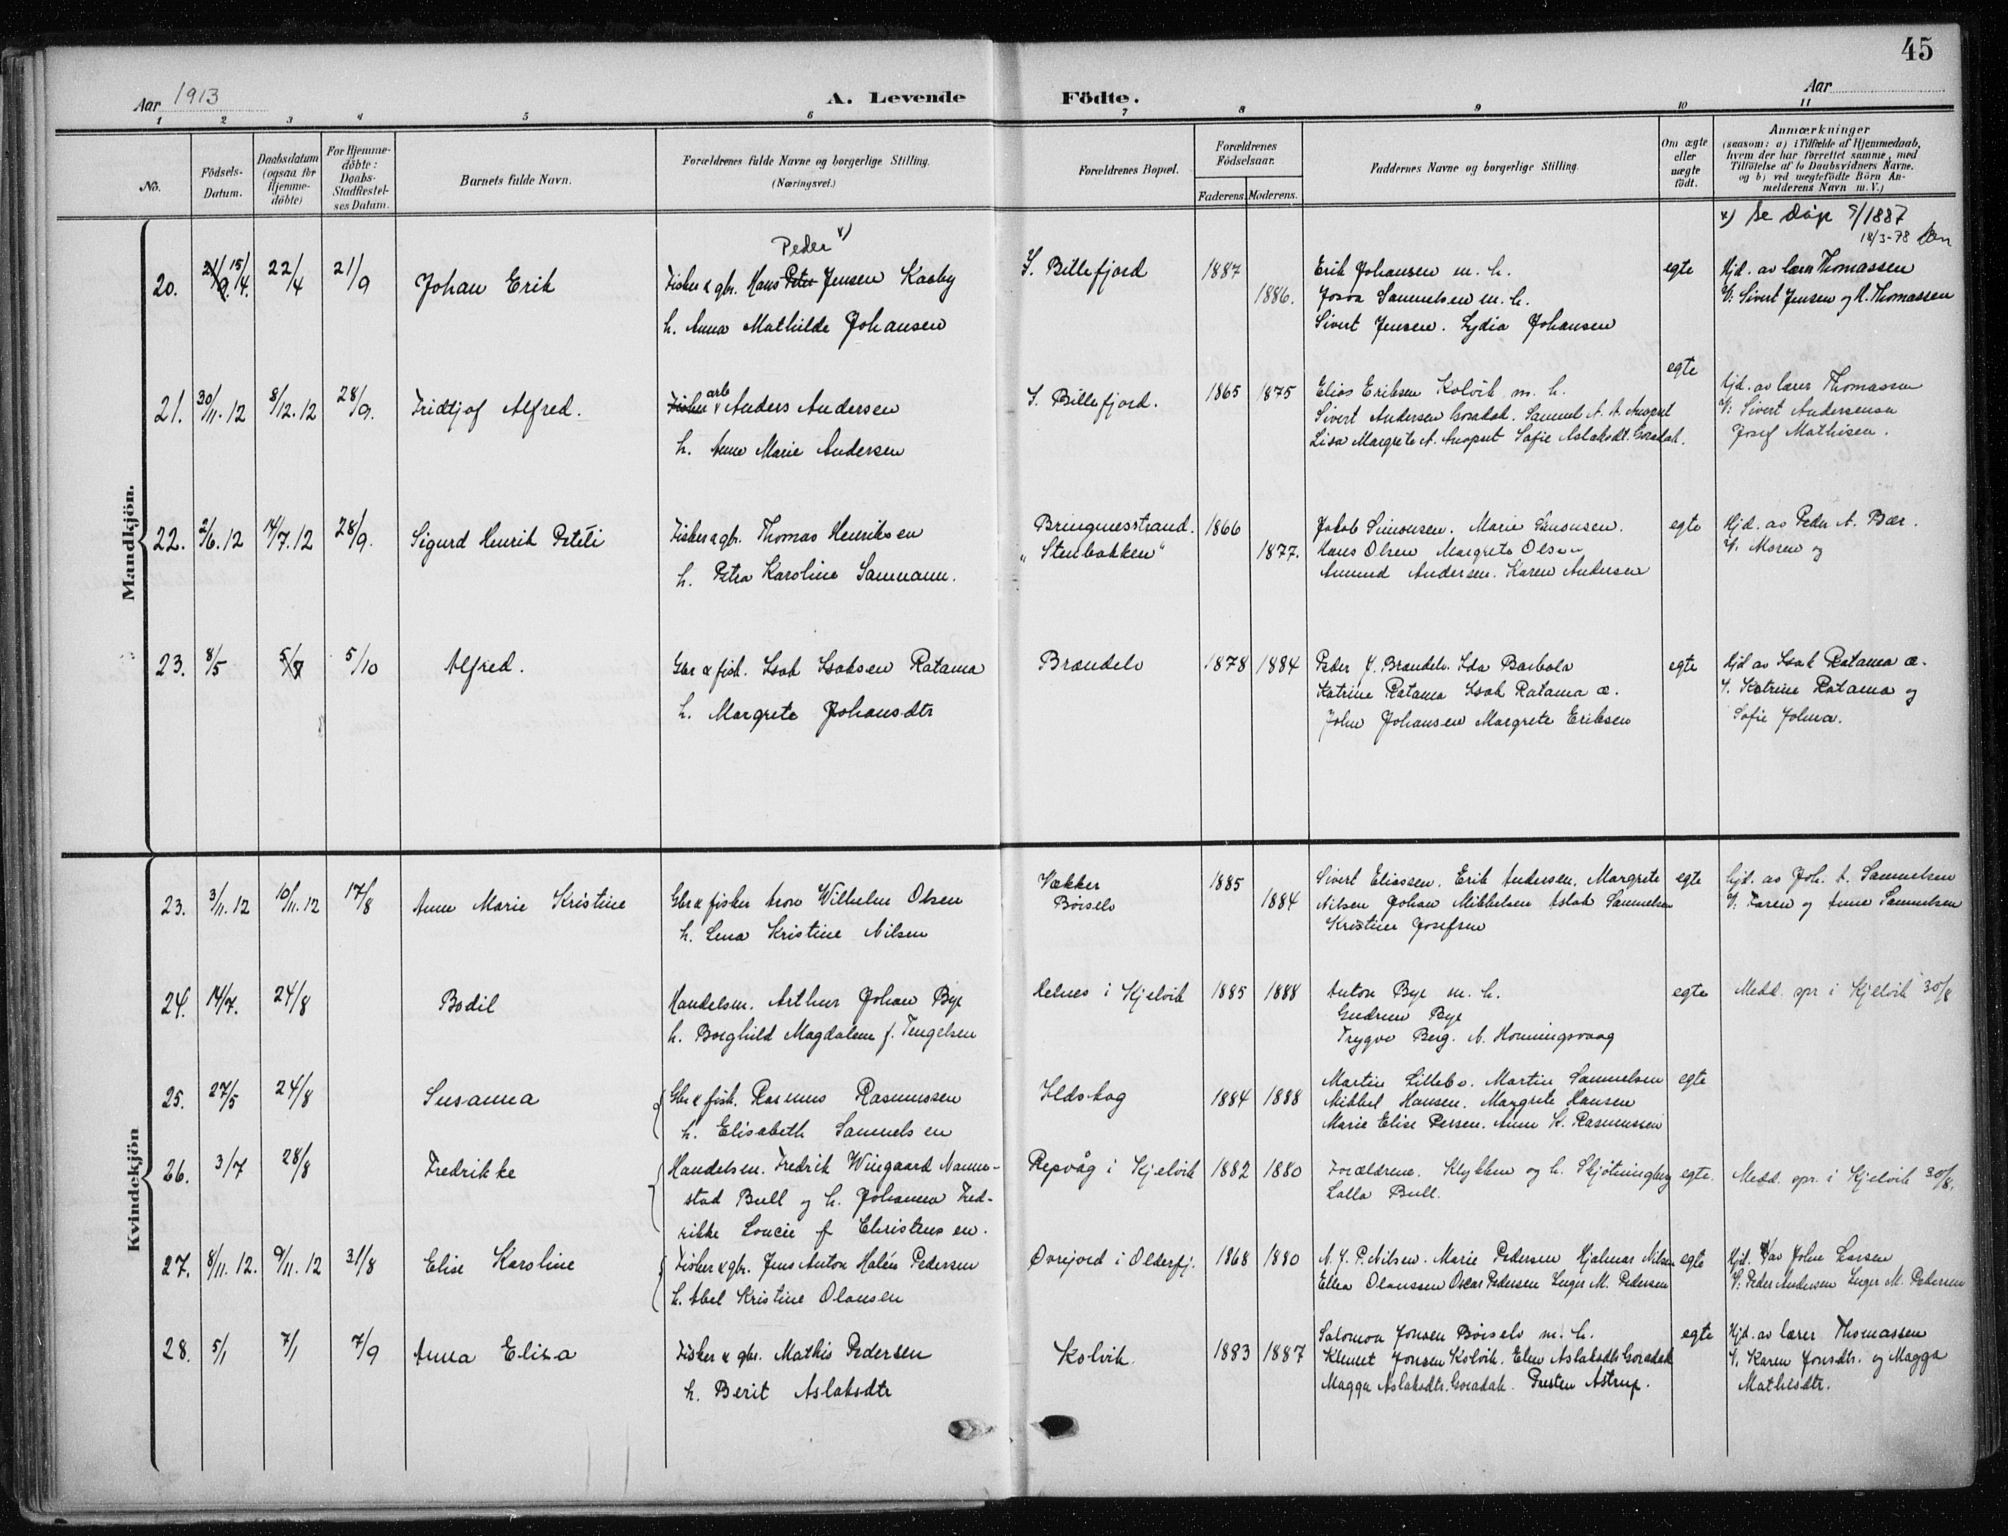 45
Aar 1913
A. Levende Födte.
Aar
1 2 3 4 5 6 7 8 9 10 11
No.
Födsels-
Datum.
Daabsdatum
(ogsaa for
Hjemme-
döbte)
For Hjemme-
döbte:
Daabs-
Stadfæstel-
ses Datum.
Barnets fulde Navn.
Forældrenes fulde Navne og borgerlige Stilling.
(Næringsvei.)
Forældrenes Bopæl.
Forældrenes
Födselsaar.
Faderens. Moderens.
Faddernes Navne og borgerlige Stilling.
Om ægte
eller
uægte
födt.
Anmærkninger
(saasom: a) i Tilfælde af Hjemmedaab,
hvem der har forrettet samme, med
Tilföielse af to Daabsvidners Navne,
og b) ved uegtefödte Börn An-
melderens Navn m. V.)
Mandkjön.
x) Se Dåp 9/1887
18/3-78
Peder x)
20. 21/9 15/4. 22/4 21/9 Johan Erik Fisker & gbr. Hans Peter Jensen Kaaby S. Billefjord 1887 Erik Johansen m. h. egte Hjd. av lærer Thomassen
1886. Josva Samuelsen m. h. V: Sivert Jensen og H. Thomassen
h. Anna Mathilde Johansen Sivert Jensen. Lydia Johansen
21. 30/11.12 8/12.12 28/9. Fridtjof Alfred. Fisker arb v Anders Andersen S. Billefjord. 1865 1875 Elias Eriksen Kolvik m. h. egte Hjd. av lærer Thomassen
Sivert Andersen Goradak. Samuel A. A. Anopset V: Sivert Andersensen
h. Anne Marie Andersen Lisa Margrete A. Anopset Sofie Aslaksdt. Goradak. Josef Mathisen.
22. 2/6.12 14/7.12 28/9. Sigurd Henrik Peteli Fisker & gbr. Thomas Henriksen Bringnesstrand. 1866 Jakob Simonsen. Marie Simonsen. egte Hjd. av Peder A. Bær.
"Stenbakken" 1877. Hans Olsen Margrete Olsen V. Moren og
h. Petra Karoline Sammann. Amund Andersen. Karen Andersen
23. 8/5 5/7 5/10 Alfred. Gbr & fisk. Isak Isaksen Ratama Brændelv 1878 1884 Peder J. Brændelv. Ida Barbala egte Hjd av Isak Ratama æ.
Katrine Ratama Isak Ratama æ. V. Katrine Ratama og
h. Margrete Johansdtr John Johansen Margrete Eriksen Sofie Johna.
Kvindekjön
23. 3/11.12 10/11.12 17/8 Anne Marie Kristine Gbr & fisker Aron Wilhelm Olsen Vækker 1885 Sivert Eliassen. Erik Andersen. Margrete egte Hjd. av Joh. A. Samuelsen
Børselv 1884 Nilsen Johan Mikkelsen Aslak Samuelsen V: Karen og Anne Samuelsen
h. Lena Kristine Nilsen Kristine Josefsen
24. 14/7. 24/8 Bodil Handelsm. Arthur Johan Bye Helnes i Kjelvik 1885 1888 Anton Bye m. h. egte Medd. spr. i Kjelvik 30/8
Gudrun Bye
h. Borghild Magdalene f. Tengelsen Trygve Berg. A. Honningsvaag
25. 27/5 24/8 Susanna Gbr & fisk. Rasmus Rasmussen Ildskog 1884 1888 Martin Lillebo. Martin Samuelsen egte
Mikkel Hansen. Margrete Hansen
h. Elisabeth Samuelsen Marie Elise Persen. Anne K. Rasmussen
26. 3/7 28/8 Fredrikke Handelsm. Fredrik Wiegaard Nanne- Repvåg i Kjelvik 1882 1880 Forældrene. Klykken og h. Skjötningberg egte. Medd. spr. i Kjelvik 30/8.
stad Bull og h. Johanna Fred- Lalla Bull.
rikke Loucie f Christensen.
27. 8/11.12. 9/11.12 31/8 Elise Karoline Fisker & gbr. Jens Anton Halén Pedersen Øvrejord i Olderfj. 1868 1880 N. J. P. Nilsen. Marie Pedersen Hjalmar Nilsen egte Hjd. av John Larsen
h. Abel Kristine Olausen Ellen Olaussen Oskar Pedersen Inger M. Pedersen V: Peder Andersen Inger M. Pedersen
28. 5/1 7/1 7/9 Anna Elisa Fisker & gbr. Mathis Pedersen Kolvik. 1883 1887 Salomon Jonsen Börselv m. h. egte Hjd. av lærer Thomassen
Klemet Jonsen Kolvik. Elen Aslaksdtr. Goradak V. Karen Jonsdtr. og Magga
h. Berit Aslaksdtr Magga Aslaksdtr. Goradak. Presten Astrup. Mathisdtr.